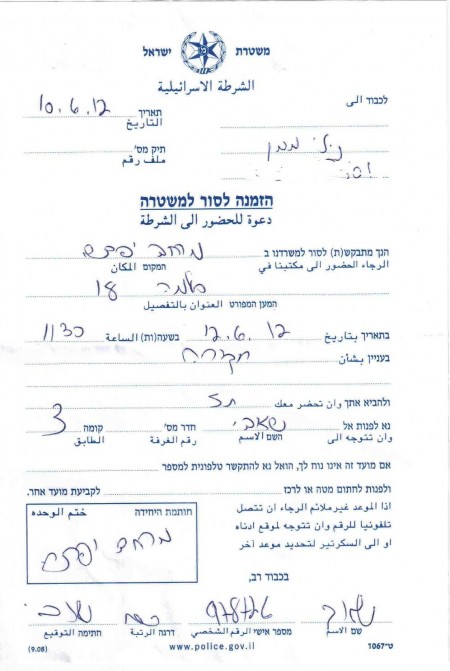 משטרת ישראל
الشرطة الاسرائيلية
לכבוד الى
תאריך 10.6.12
التاريخ
תיק מס'
ملف رقم
הזמנה לסור למשטרה
دعوة للحضور الى الشرطة
הנך מתבקש(ת) לסור למשרדנו ב מרחב
الرجاء الحضور الى مكتبنا في المقום المكان
המען המפורט العنوان بالتفصيل
בתאריך بتاريخ 12.6.12 בשעה(ות) الساعة 1130
בעניין بشأن חקירה
ולהביא אתך وان تحضر معك תז
נא לפנות אל חדר מס' קומה 3
وان تتوجه الى השם الاسم رقم الغرفة الطابق
אם מועד זה אינו נוח לך, הואל נא להתקשר טלפונית למספר
ולפנות לחתום מטה או לרכז לקביעת מועד אחר.
اذا الموعد غيرملائم الرجاء ان تتصل
تلفونيا للرقم وان تتوجه لموقع ادناه
او الى السكرتير لتحديد موعد آخر
חותמת היחידה ختم الوحده
מרחב
בכבוד רב,
שם الاسم מספר אישי الرقم الشخصي דרגה الرتبة חתימה التوقيع
(9.08) www.police.gov.il ט"1067